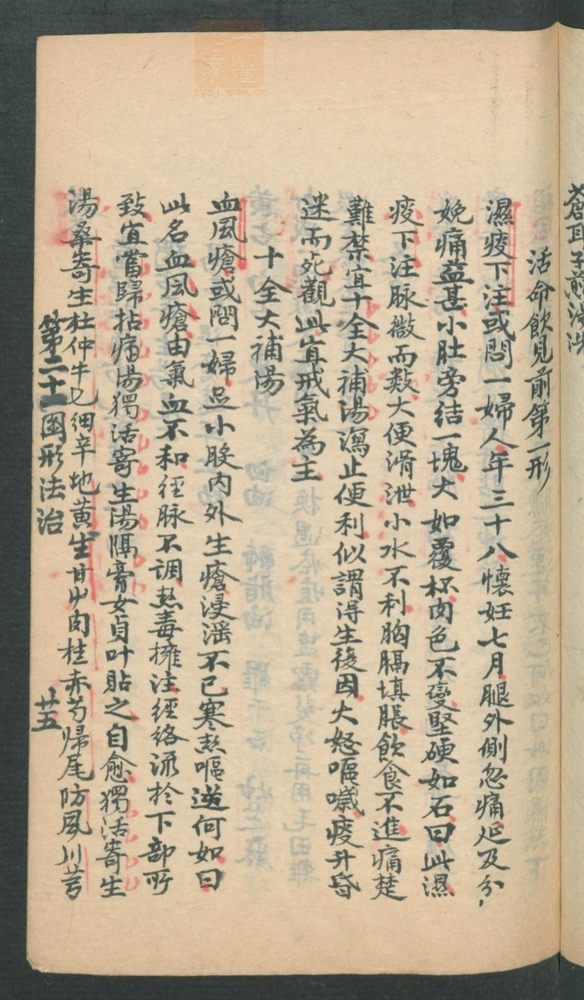 蒼耳子煎湯洗
活命飲見前第一形
濕痰下注或問一婦人年三十八懷妊七月腿外側忽痛延及分
娩痛益甚小肚旁結一塊大如覆杯肉色不變堅硬如石曰此濕
痰下注脉微而数大便滑泄小水不利胸膈填脹飲食不進痛楚
難禁宜十全大補湯瀉止便利似謂得生後因大怒嘔噦痰升昏
迷而死觀此宜戒氣為主
十全大補湯
血風瘡或問一婦足小股内外生瘡浸滛不已寒熱嘔逆何如曰
此名血风瘡由氣血不和徑脉不調热毒擁注經絡流於下部所
致宜當歸拈痛湯獨活寄生湯隔膏女貞叶貼之自愈獨活寄生
湯桑寄生杜仲牛七細辛地黄生甘艸肉桂赤芍歸尾防風川芎
第二十一图形法治
廿五